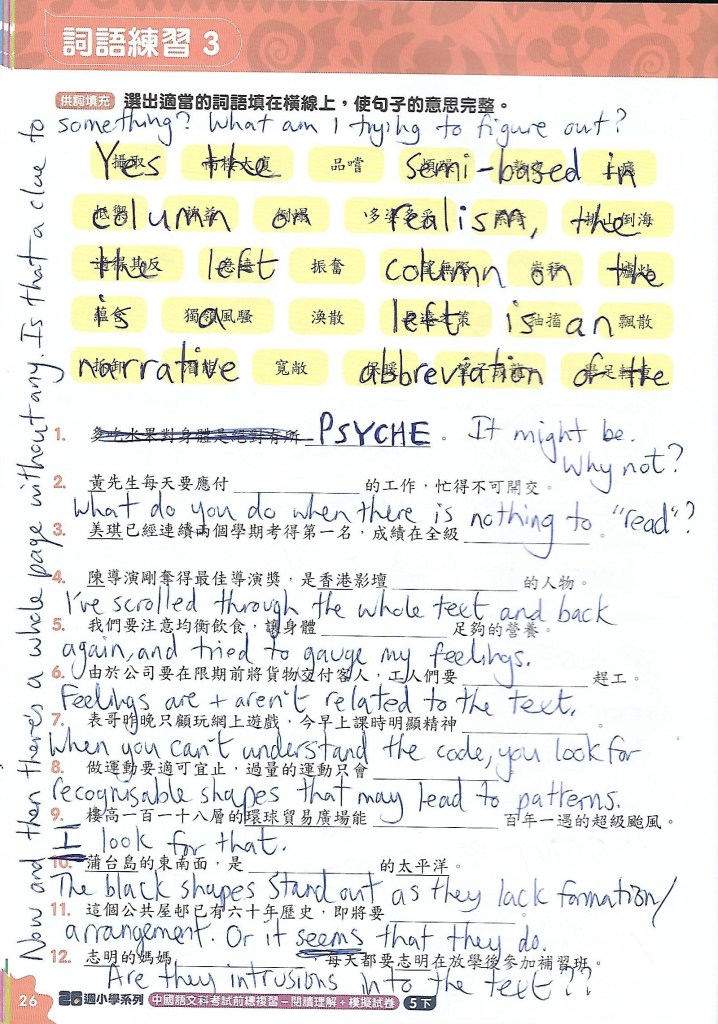 詞語練習 3
供詞填充 選出適當的詞語填在橫線上，使句子的意思完整。
something? What am I trying to figure out?
攝取 品嚐
Yes the semi-based in
抵禦 倒塌 多姿多彩 排山倒海
column on realism, the
適得其反 急速 振奮
the left column on the
蘊含 獨領風騷 渙散 飄散
is a left is an
拆卸 潛能 寬敞 舉足輕重
narrative abbreviation of the
1. 多吃水果對身體是絕對有所 PSYCHE。 It might be.
Why not?
2. 黃先生每天要應付 的工作，忙得不可開交。
What do you do when there is nothing to "read"?
3. 美琪已經連續兩個學期考得第一名，成績在全級 。
4. 陳導演剛奪得最佳導演獎，是香港影壇 的人物。
I've scrolled through the whole text and back
5. 我們要注意均衡飲食，讓身體 足夠的營養。
again, and tried to gauge my feelings.
6. 由於公司要在限期前將貨物交付客人，工人們要 趕工。
Feelings are + aren't related to the text.
7. 表哥昨晚只顧玩網上遊戲，今早上課時明顯精神 。
When you can't understand the code, you look for
8. 做運動要適可宜止，過量的運動只會
recognisable shapes that may lead to patterns.
9. 樓高一百一十八層的環球貿易廣場能 百年一遇的超級颱風。
I look for that.
10. 蒲台島的東南面，是 的太平洋。
The black shapes stand out as they lack formation/
11. 這個公共屋邨已有六十年歷史，即將要
arrangement. Or it seems that they do.
12. 志明的媽媽 ，每天都要志明在放學後參加補習班。
Are they intrusions into the text??
26 26週小學系列 中國語文科考試前總複習－閱讀理解＋模擬試卷 5下
Now and then there's a whole page without any. Is that a clue to